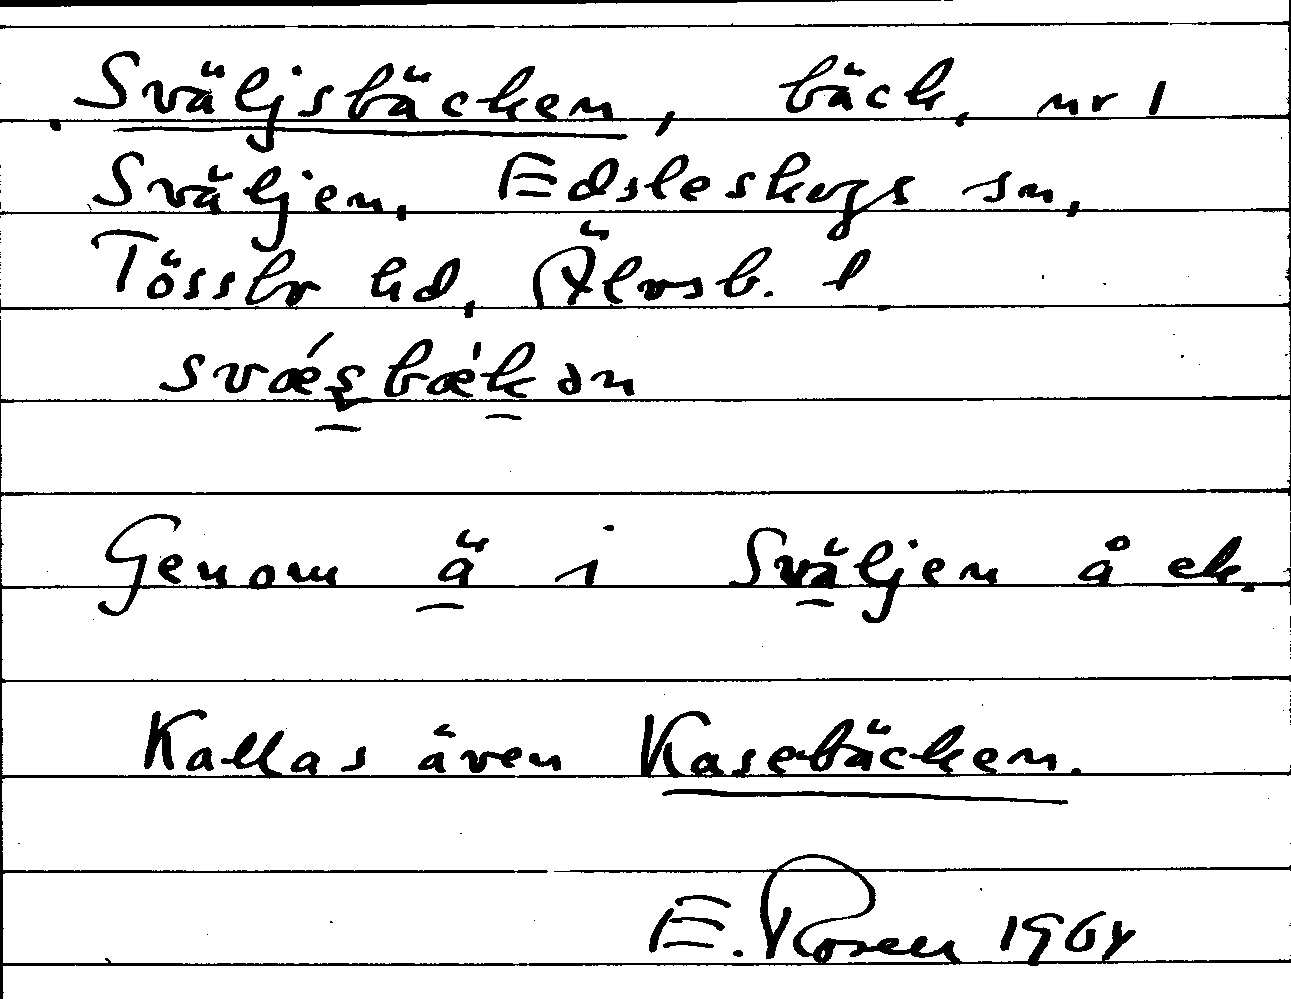 Sväljsbäcken, bäck, nr 1
Sväljen, Edsleskogs sn,
Tössbo hd, Älvsb. l
Genom ä i Sväljen å ek.
Kallas även Kasebäcken.
E. Rosen 1964